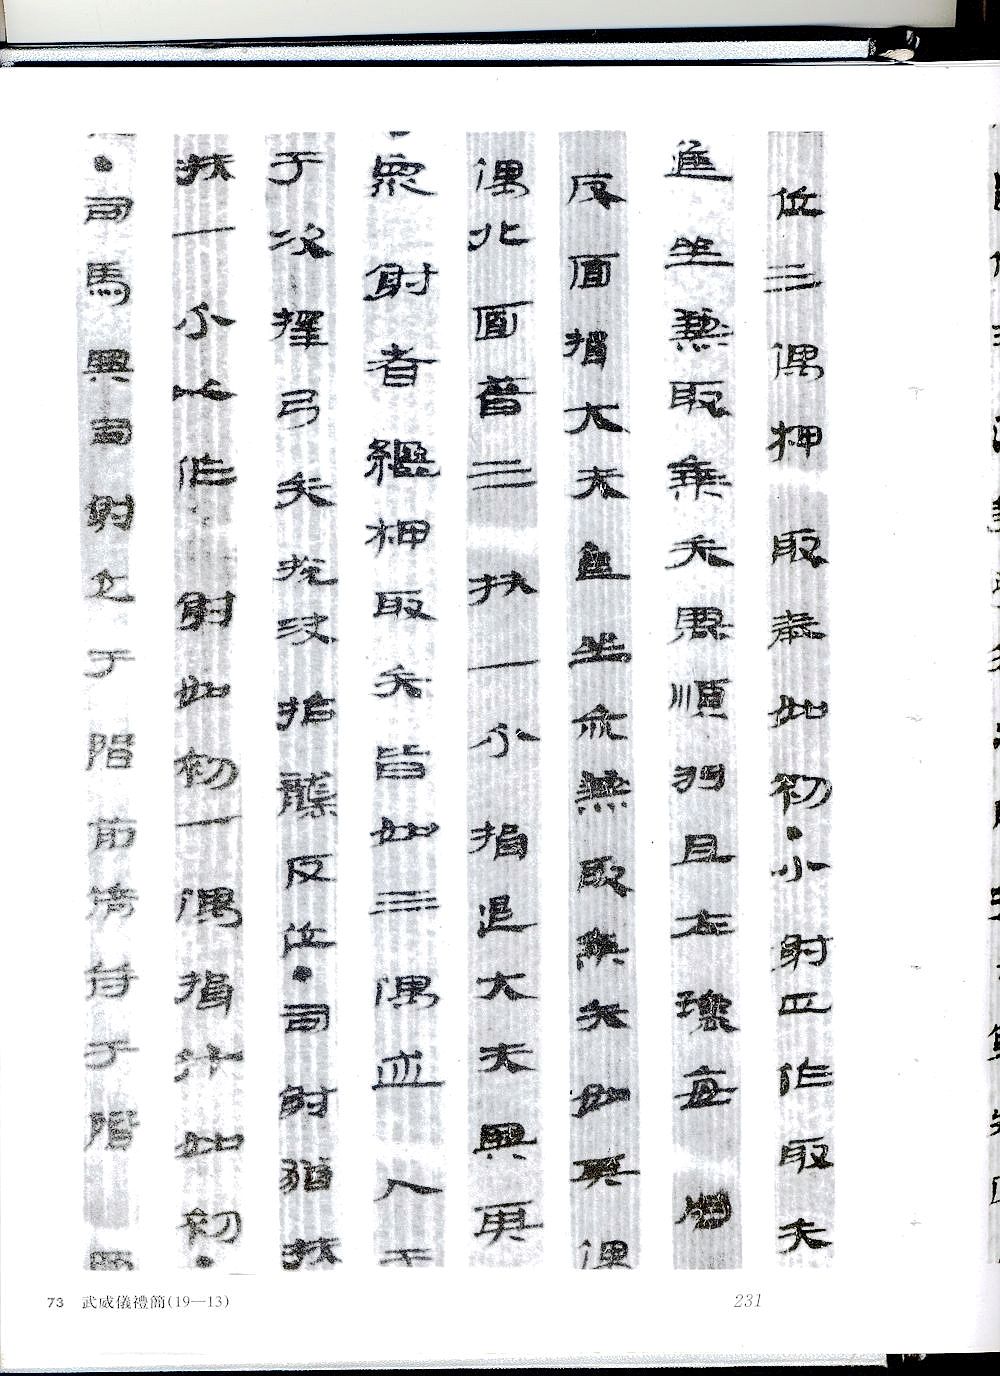 位三偶押取奉如初·小射正作取矢
進坐兼取乘矢興順羽且左環毎
反面揖大夫進坐亦兼取乘矢如其偶
偶北面晉三扶一个揖退大夫興再
衆射者繼押取矢皆如三偶並入于
于次擇弓矢挩決拾襲反位·司射猶扶
扶一个以作射如初一偶揖升如初·
·司馬興司射立于階前請侍于階西
73 武威儀禮簡(19—13)
231